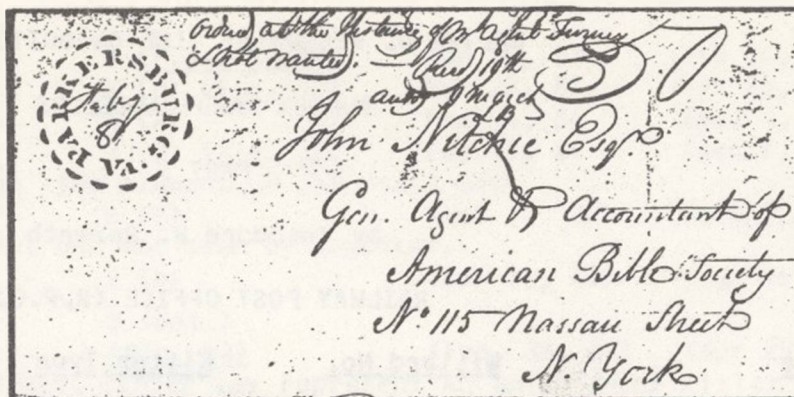 PARKERSBURG VA
July
8
at the Instance of Mr Agent
& not wanted. Recd 19th
37
John Nitchie Esqr
Gen. Agent & Accountant of
American Bible Society
No 115 Nassau Street
N. York